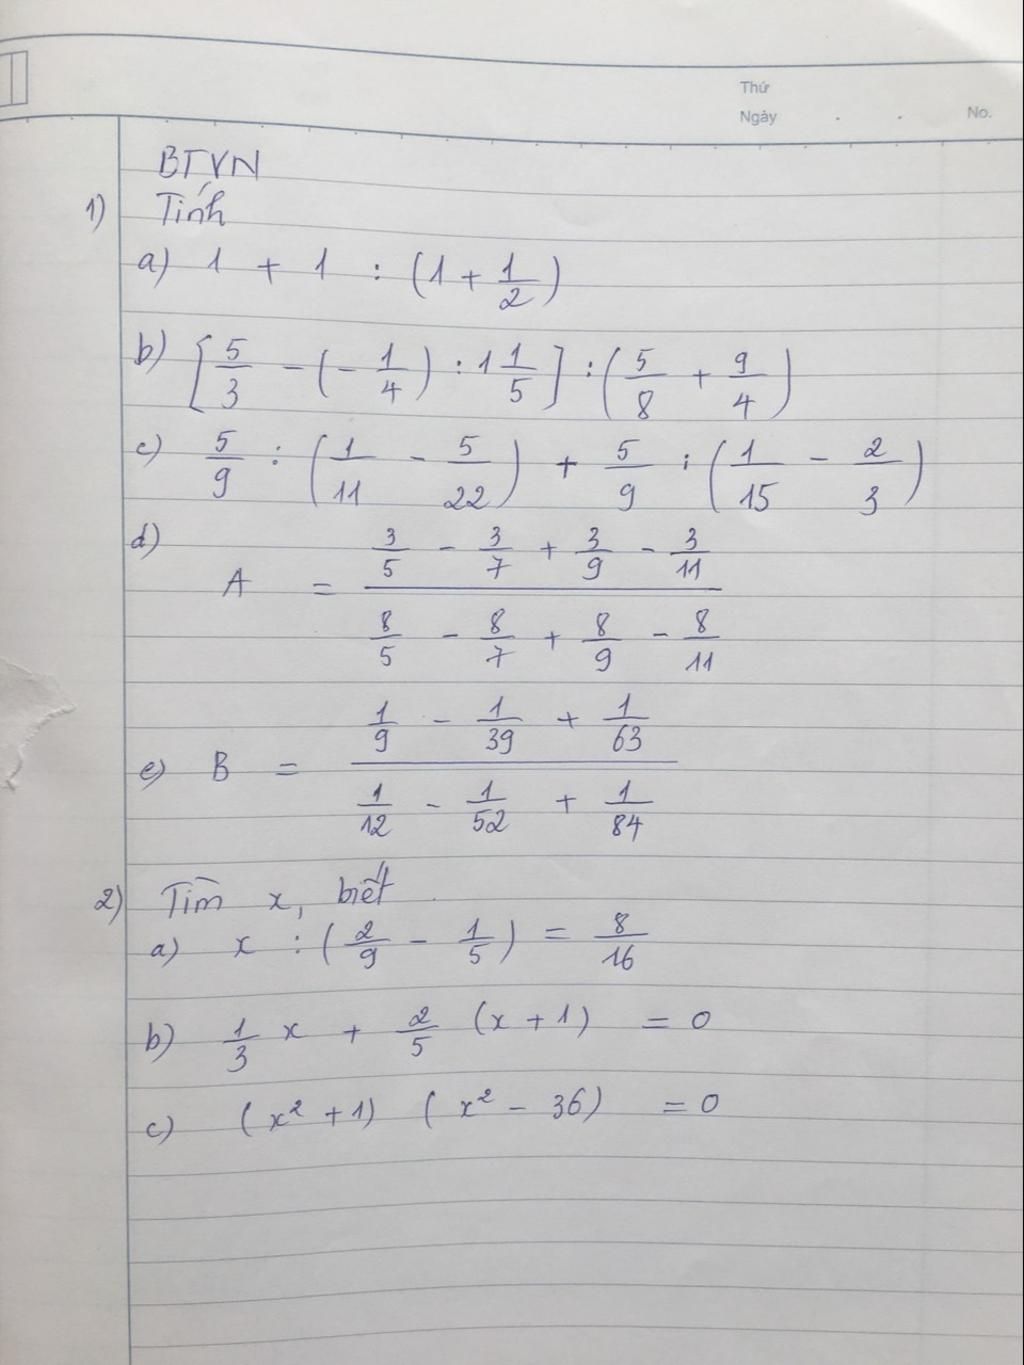 Thứ
Ngày . . No.
BTVN
1) Tính
a) 1 + 1 : (1 + 1/2)
b) [5/3 - (- 1/4) : 1 1/5] : (5/8 + 9/4)
c) 5/9 : (1/11 - 5/22) + 5/9 : (1/15 - 2/3)
d) A = (3/5 - 3/7 + 3/9 - 3/11) / (8/5 - 8/7 + 8/9 - 8/11)
e) B = (1/9 - 1/39 + 1/63) / (1/12 - 1/52 + 1/84)
2) Tìm x, biết
a) x : (2/9 - 1/5) = 8/16
b) 1/3 x + 2/5 (x + 1) = 0
c) (x² + 1) (x² - 36) = 0